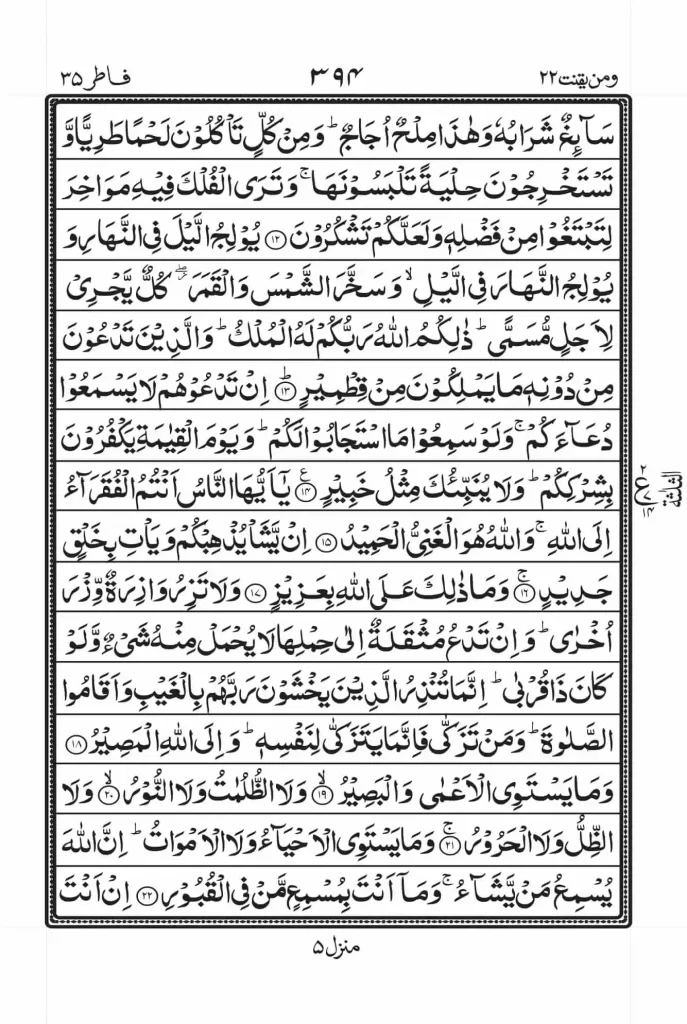 ومن یقنت ۲۲ ۳۹۴ فاطر ۳۵
سَآىِٕغٌ شَرَابُهٗ وَهٰذَا مِلْحٌ اُجَاجٌ ؕ وَمِنْ كُلٍّ تَاْكُلُوْنَ لَحْمًا طَرِيًّا وَّ
تَسْتَخْرِجُوْنَ حِلْيَةً تَلْبَسُوْنَهَا ۚ وَتَرَى الْفُلْكَ فِيْهِ مَوَاخِرَ
لِتَبْتَغُوْا مِنْ فَضْلِهٖ وَلَعَلَّكُمْ تَشْكُرُوْنَ ۝۱۲ يُوْلِجُ الَّيْلَ فِى النَّهَارِ وَ
يُوْلِجُ النَّهَارَ فِى الَّيْلِ ۙ وَسَخَّرَ الشَّمْسَ وَالْقَمَرَ ۖ كُلٌّ يَّجْرِىْ
لِاَجَلٍ مُّسَمًّى ؕ ذٰلِكُمُ اللّٰهُ رَبُّكُمْ لَهُ الْمُلْكُ ؕ وَالَّذِيْنَ تَدْعُوْنَ
مِنْ دُوْنِهٖ مَا يَمْلِكُوْنَ مِنْ قِطْمِيْرٍ ؕ۝۱۳ اِنْ تَدْعُوْهُمْ لَا يَسْمَعُوْا
دُعَآءَكُمْ ۚ وَلَوْ سَمِعُوْا مَا اسْتَجَابُوْا لَكُمْ ؕ وَيَوْمَ الْقِيٰمَةِ يَكْفُرُوْنَ
بِشِرْكِكُمْ ؕ وَلَا يُنَبِّئُكَ مِثْلُ خَبِيْرٍ ۝۱۴ يٰۤاَيُّهَا النَّاسُ اَنْتُمُ الْفُقَرَآءُ
اِلَى اللّٰهِ ۚ وَاللّٰهُ هُوَ الْغَنِىُّ الْحَمِيْدُ ۝۱۵ اِنْ يَّشَاْ يُذْهِبْكُمْ وَيَاْتِ بِخَلْقٍ
جَدِيْدٍ ۚ۝۱۶ وَمَا ذٰلِكَ عَلَى اللّٰهِ بِعَزِيْزٍ ۝۱۷ وَلَا تَزِرُ وَازِرَةٌ وِّزْرَ
اُخْرٰى ؕ وَاِنْ تَدْعُ مُثْقَلَةٌ اِلٰى حِمْلِهَا لَا يُحْمَلْ مِنْهُ شَىْءٌ وَّلَوْ
كَانَ ذَا قُرْبٰى ؕ اِنَّمَا تُنْذِرُ الَّذِيْنَ يَخْشَوْنَ رَبَّهُمْ بِالْغَيْبِ وَاَقَامُوا
الصَّلٰوةَ ؕ وَمَنْ تَزَكّٰى فَاِنَّمَا يَتَزَكّٰى لِنَفْسِهٖ ؕ وَاِلَى اللّٰهِ الْمَصِيْرُ ۝۱۸
وَمَا يَسْتَوِى الْاَعْمٰى وَالْبَصِيْرُ ۙ۝۱۹ وَلَا الظُّلُمٰتُ وَلَا النُّوْرُ ۙ۝۲۰ وَلَا
الظِّلُّ وَلَا الْحَرُوْرُ ۚ۝۲۱ وَمَا يَسْتَوِى الْاَحْيَآءُ وَلَا الْاَمْوَاتُ ؕ اِنَّ اللّٰهَ
يُسْمِعُ مَنْ يَّشَآءُ ۚ وَمَاۤ اَنْتَ بِمُسْمِعٍ مَّنْ فِى الْقُبُوْرِ ۝۲۲ اِنْ اَنْتَ
۲ ع ۷ ۱۴ الثلثة
منزل ۵